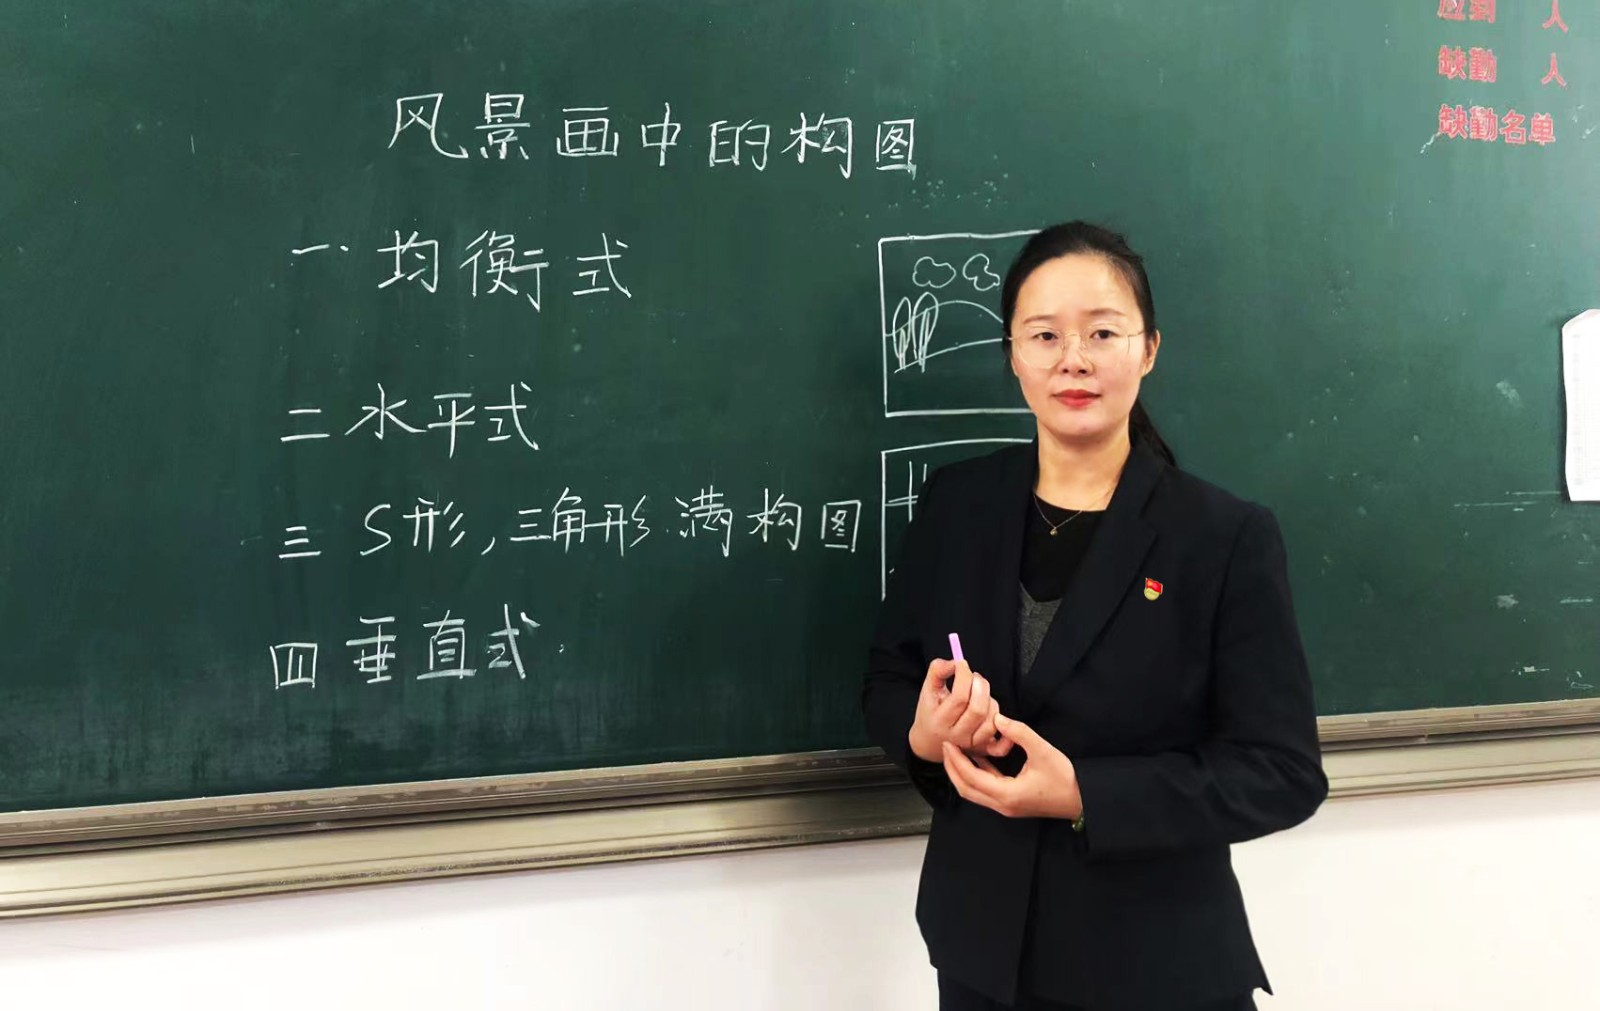 应到 人
缺勤 人
缺勤名单
风景画中的构图
一.均衡式
二水平式
三 S形,三角形.满构图
四垂直式.